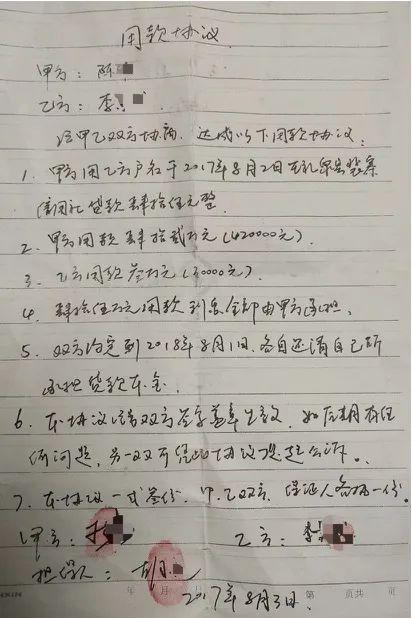 用款协议
甲方：陈
乙方：李
经甲乙双方协商，达成以下用款协议：
1. 甲方用乙方户名于2017年8月2日在礼泉县
信用社贷款肆拾伍元整
2. 甲方用款肆拾贰万元（420000元）.
3. 乙方用款叁万元（30000元）
4. 肆拾伍万元用款利息全部由甲方承担.
5. 双方约定到2018年8月1日，各自还清自己所
承担贷款本金.
6. 本协议经双方签字盖章生效，如后期有任
何问题，另一双可凭此协议提起公诉。
7. 本协议一式叁份，甲.乙双方，保证人各执一份.
甲方：
乙方：李
担保人：
2017年8月3日.
年 月 第 页共 页